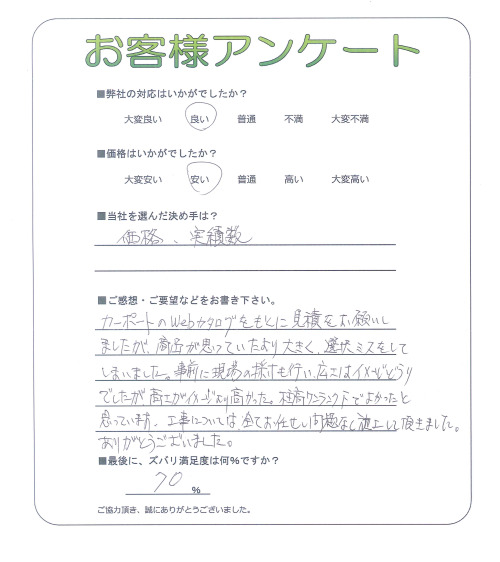 お客様アンケート
■弊社の対応はいかがでしたか？
大変良い 良い 普通 不満 大変不満
■価格はいかがでしたか？
大変安い 安い 普通 高い 大変高い
■当社を選んだ決め手は？
価格、実績数
■ご感想・ご要望などをお書き下さい。
カーポートのWebカタログをもとに見積をお願いし
ましたが、商品が思っていたより大きく、選択ミスをして
しまいました。事前に現場の採寸も行い、広さはイメージどうり
でしたが高さがイメージより高かった。柱高 でよかったと
思っています。工事については、全てお任せし問題なく施工して頂きました。
ありがとうございました。
■最後に、ズバリ満足度は何％ですか？
70 ％
ご協力頂き、誠にありがとうございました。